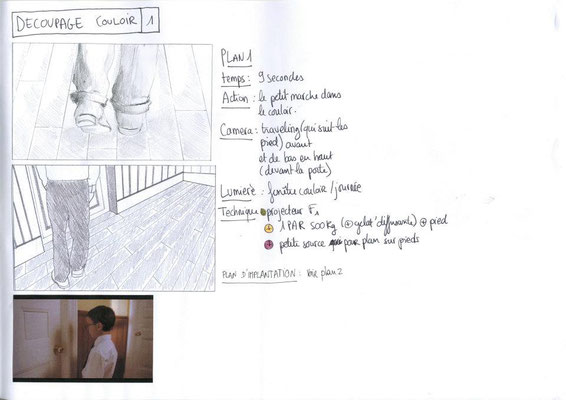 DECOUPAGE COULOIR 1
PLAN 1
temps : 9 secondes
Action : le petit marche dans
le couloir.
Camera : traveling (qui suit les
pied) avant
et de bas en haut
(devant la porte)
Lumière : fenêtre couloir / journée
Technique projecteur F1
1 PAR 500 (+ gélat' diffusante) + pied
petite source pour plan sur pieds
PLAN D'IMPLANTATION : Voir plan 2